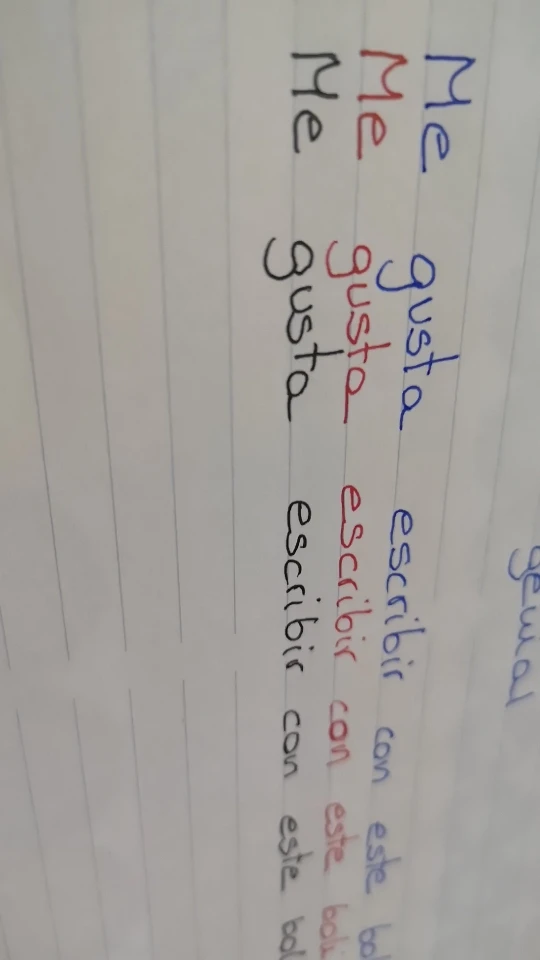 genial
Me gusta escribir con este bol
Me gusta escribir con este boli
Me gusta escribir con este bol